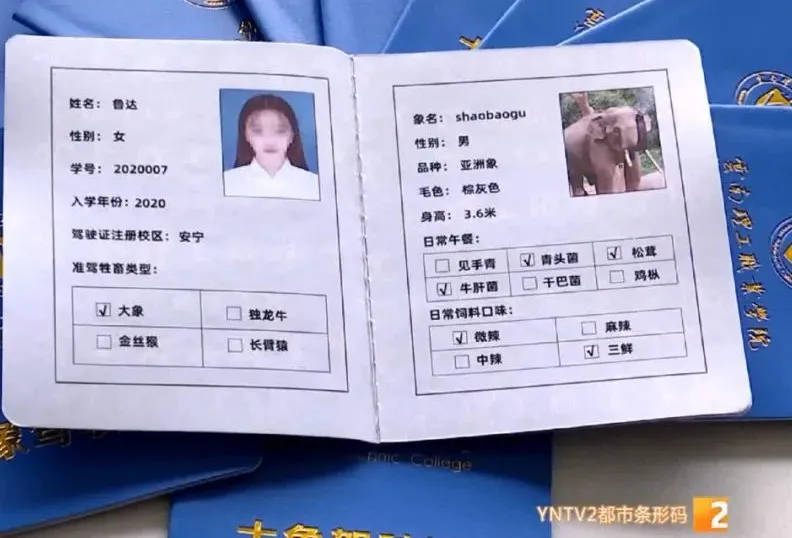 姓名： 鲁达
性别： 女
学号： 2020007
入学年份：2020
驾驶证注册校区：安宁
准驾牲畜类型：
☑ 大象 ☐ 独龙牛
☐ 金丝猴 ☐ 长臂猿
象名： shaobaogu
性别： 男
品种： 亚洲象
毛色： 棕灰色
身高： 3.6米
日常午餐：
☐ 见手青 ☑ 青头菌 ☑ 松茸
☑ 牛肝菌 ☐ 干巴菌 ☐ 鸡枞
日常饲料口味：
☑ 微辣 ☐ 麻辣
☐ 中辣 ☑ 三鲜
云南理工职业学院
College
大象驾
YNTV2都市条形码 2